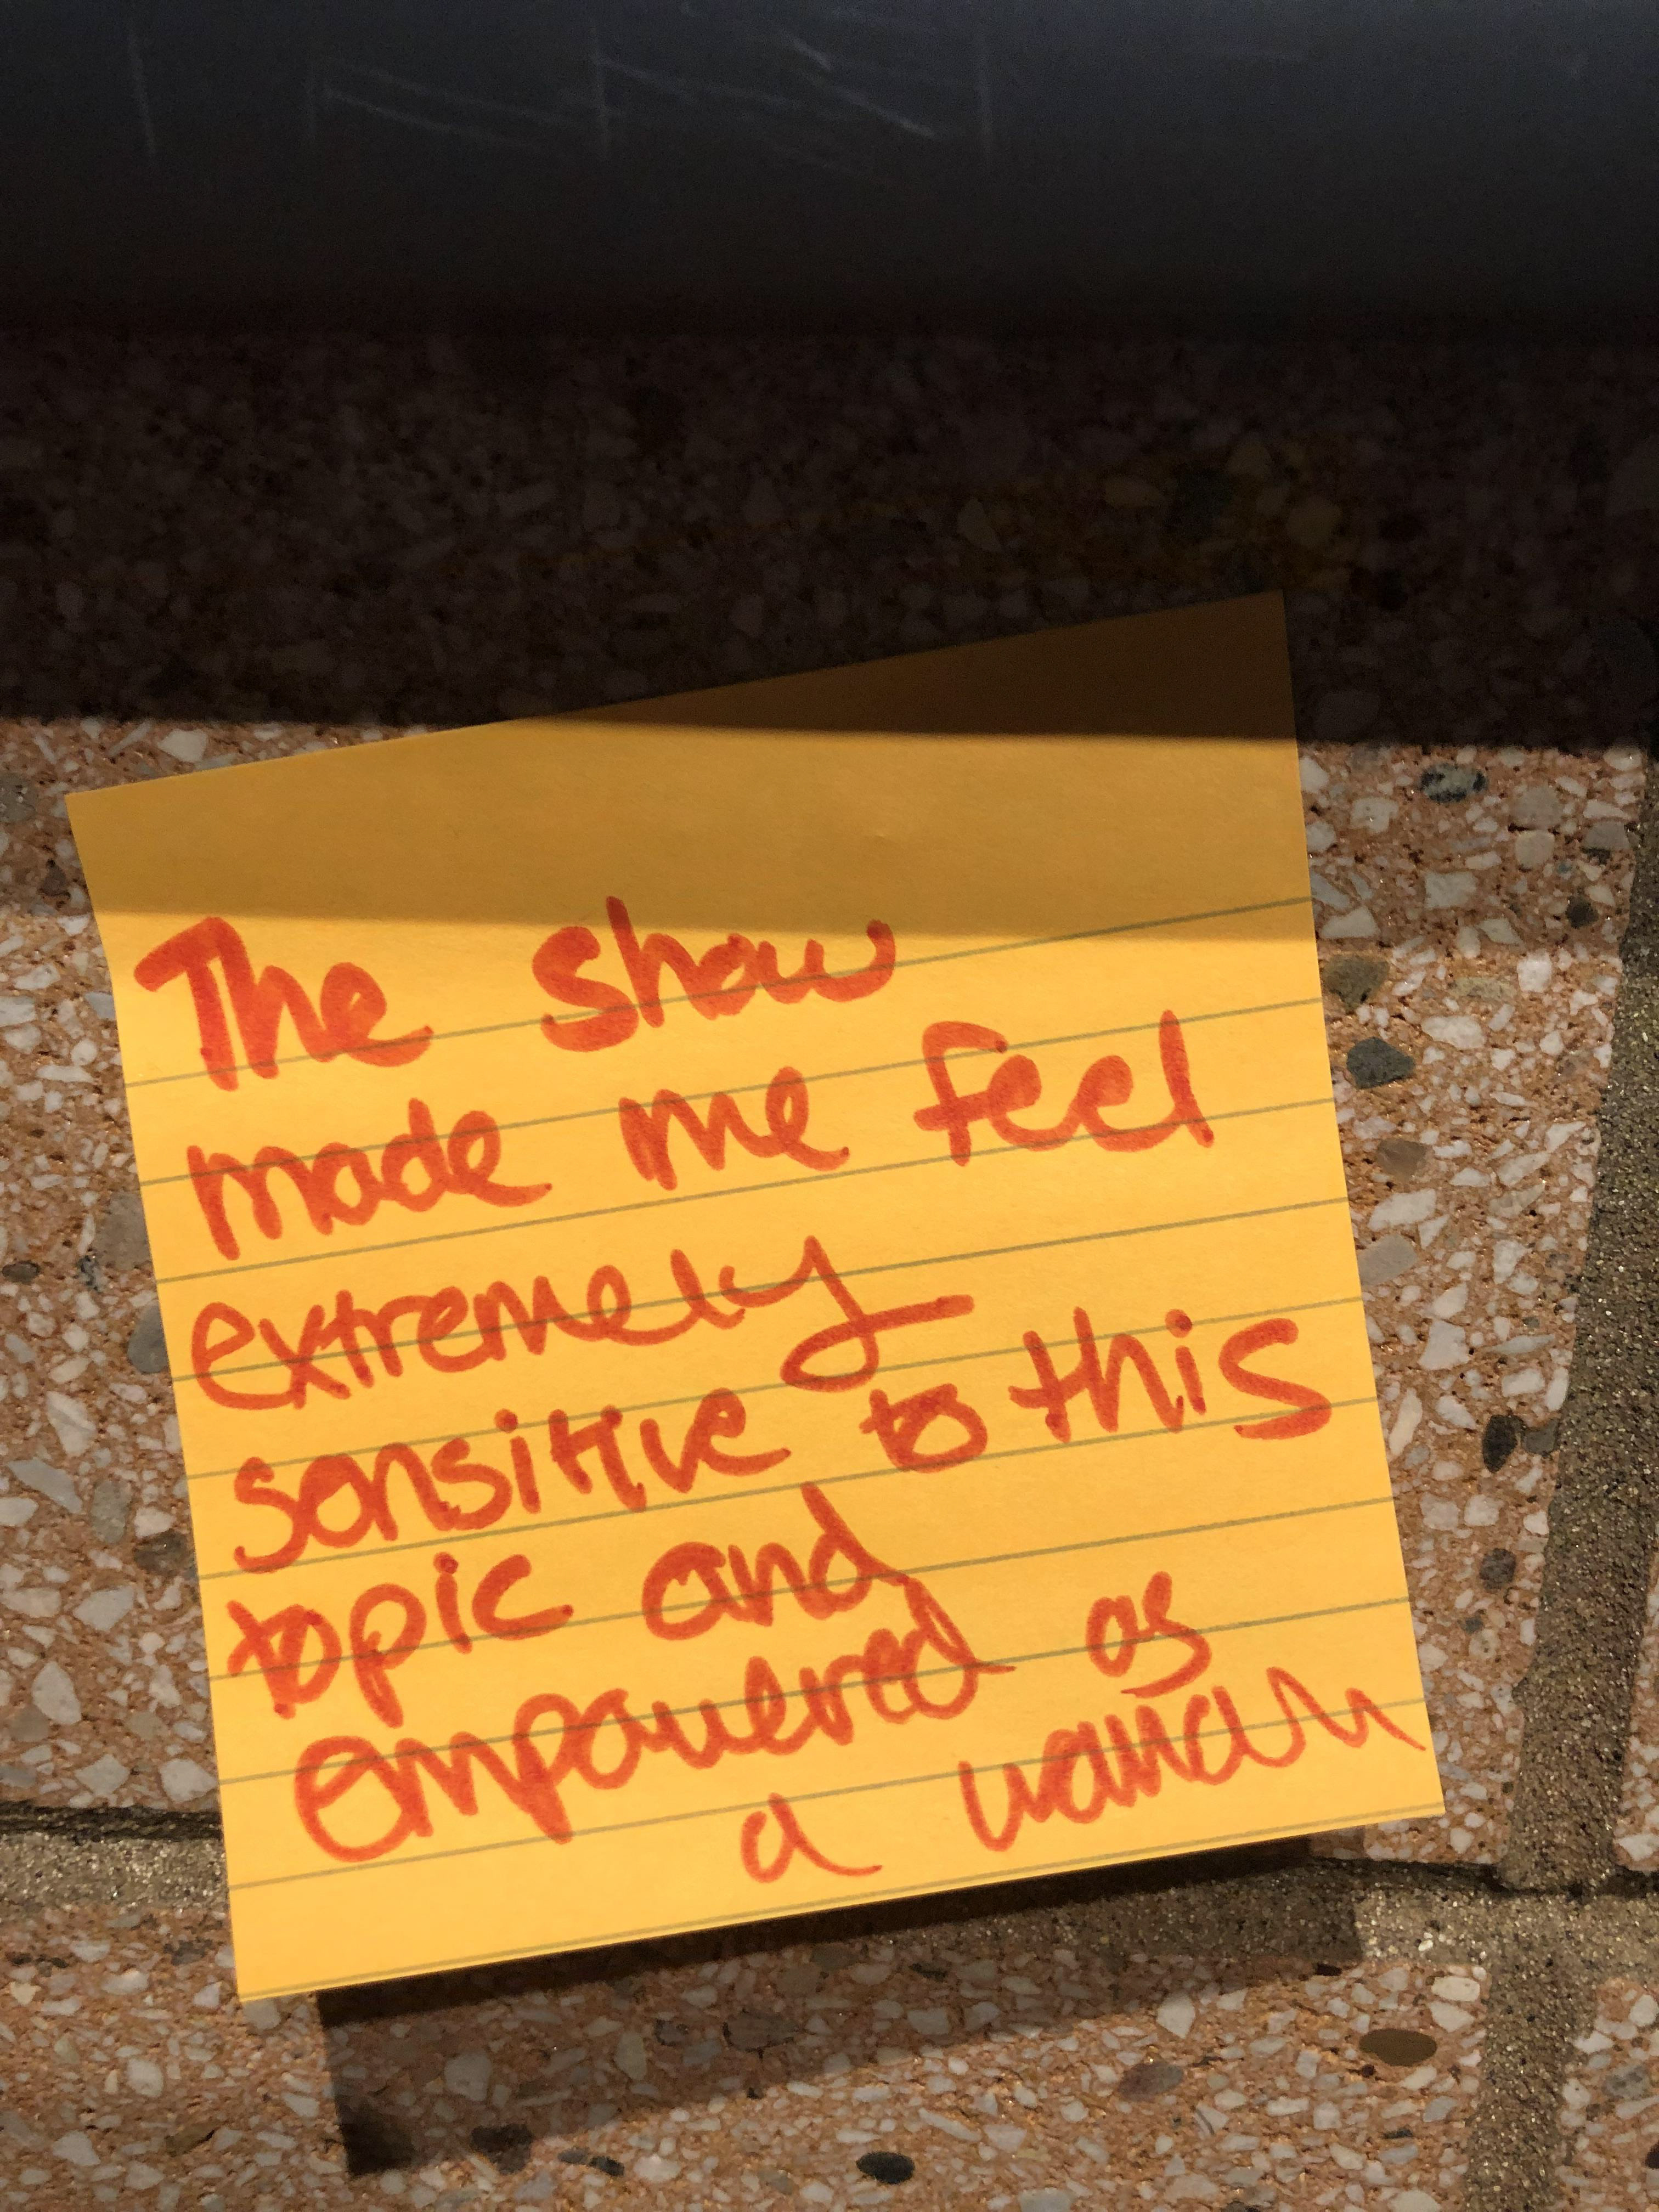 The show
made me feel
extremely
sensitive to this
topic and
empowered as
a woman